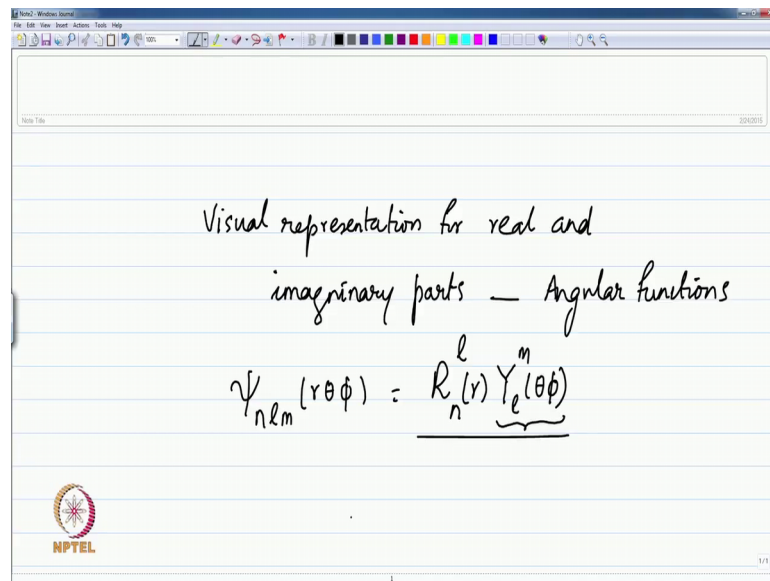 Note2 - Windows Journal
File Edit View Insert Actions Tools Help
100%
B I
Note Title
2/24/2015
Visual representation for real and
imagninary parts — Angular functions
ψₙₗₘ (rθϕ) = Rₙˡ(r) Yₗᵐ(θϕ)
NPTEL
1/1
1